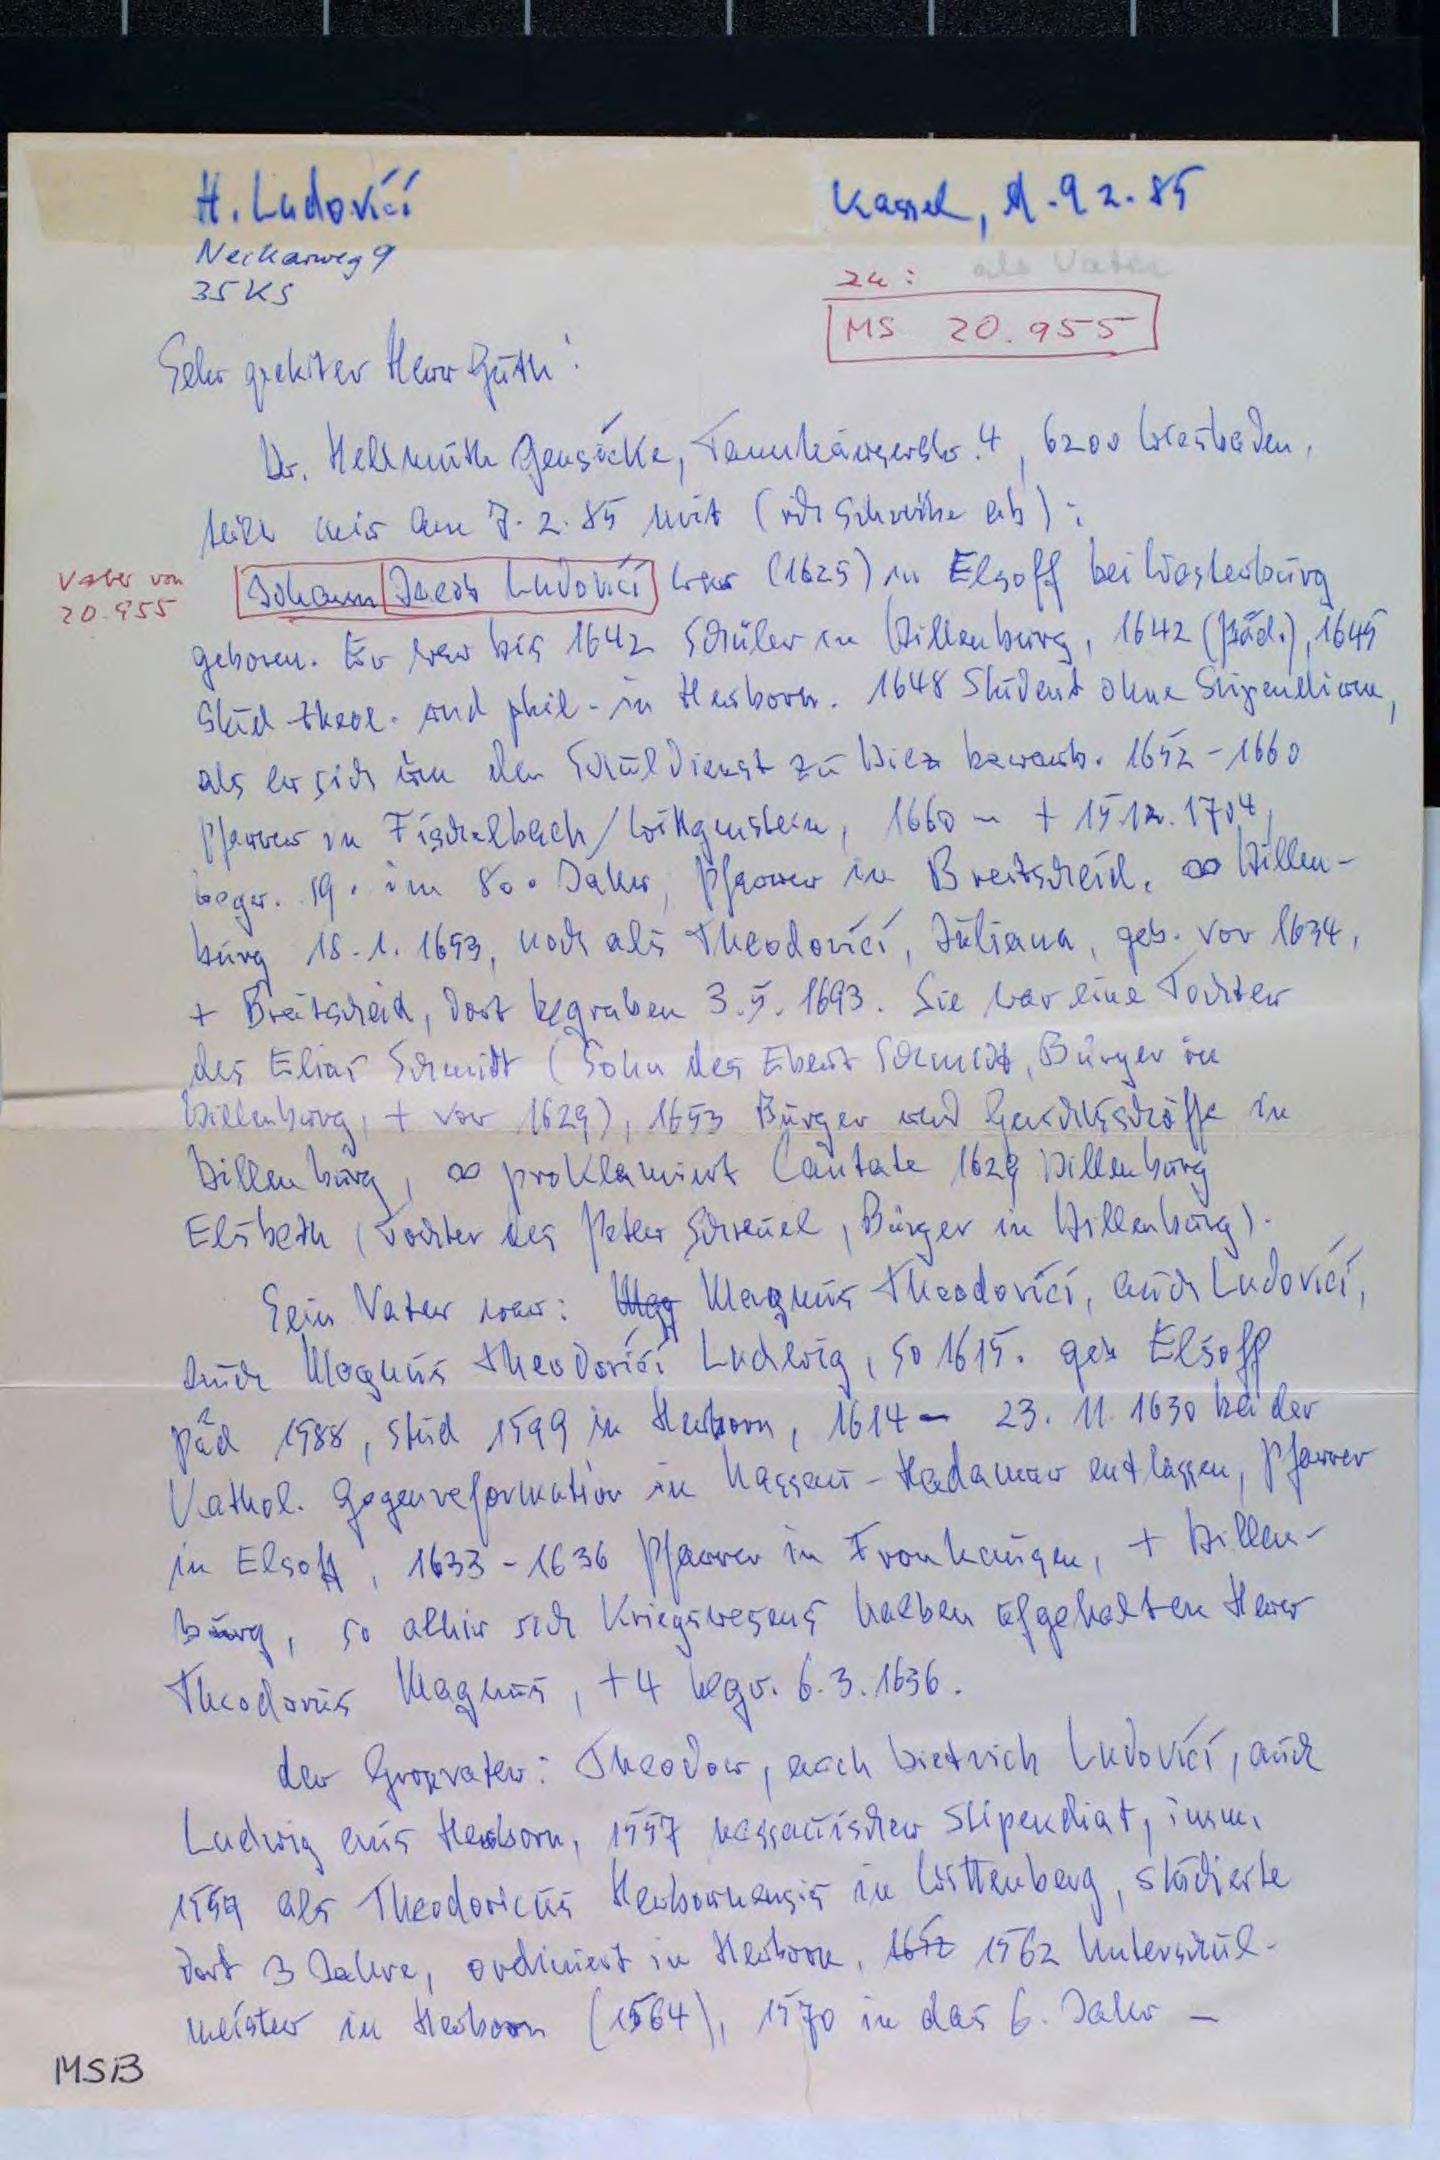 H. Ludovici
Kassel, d. 9 2. 85
Neckarweg 9
35 KS
als Vater
zu:
MS 20.955
Sehr geehrter Herr Güth!
Dr. Hellmuth Gensicke, Tannhäuserstr. 4, 6200 Wiesbaden,
teilt mir am 7. 2. 85 mit (ich schreibe ab):
Vater von
20.955
Johann Jacob Ludovici war (1625) in Elsoff bei Westerburg
geboren. Er war bis 1642 Schüler in Dillenburg, 1642 (Päd.), 1645
Stud theol. und phil. in Herborn. 1648 Student ohne Stipendium,
als er sich um den Schuldienst zu Diez bewarb. 1652 - 1660
Pfarrer in Fischelbach/Wittgenstein, 1660 - + 15 12. 1704,
begr. 19. im 80. Jahr, Pfarrer in Breitscheid. ∞ Dillen-
burg 18. 1. 1653, noch als Theodorici, Juliana, geb. vor 1634,
+ Breitscheid, dort begraben 3. 5. 1693. Sie war eine Tochter
des Elias Schmidt (Sohn des Ebert Schmidt, Bürger in
Dillenburg, + vor 1629), 1653 Bürger und Gerichtsschöffe in
Dillenburg, ∞ proklamiert Cantate 1629 Dillenburg
Elsbeth (Tochter des Peter Schreuel, Bürger in Dillenburg).
Sein Vater war: Mag Magnus Theodorici, auch Ludovici,
auch Magnus Theodorici Ludwig, so 1615. geb Elsoff
Päd 1588, stud 1599 in Herborn, 1614 - 23. 11. 1630 bei der
Kathol. Gegenreformation in Nassau-Hadamar entlassen, Pfarrer
in Elsoff, 1633 - 1636 Pfarrer in Fronhausen, + Dillen-
burg, so alhir sich Kriegswesens halben ufgehalten Herr
Theodorus Magnus, + 4 begr. 6. 3. 1636.
der Grossvater: Theodor, auch Dietrich Ludovici, auch
Ludwig aus Herborn, 1557 nassauischer Stipendiat, imm.
1559 als Theodoricus Herbornensis in Wittenberg, studierte
dort 3 Jahre, ordiniert in Herborn, 1652 1562 Unterschul-
meister in Herborn (1564), 1570 in das 6. Jahr -
MSB